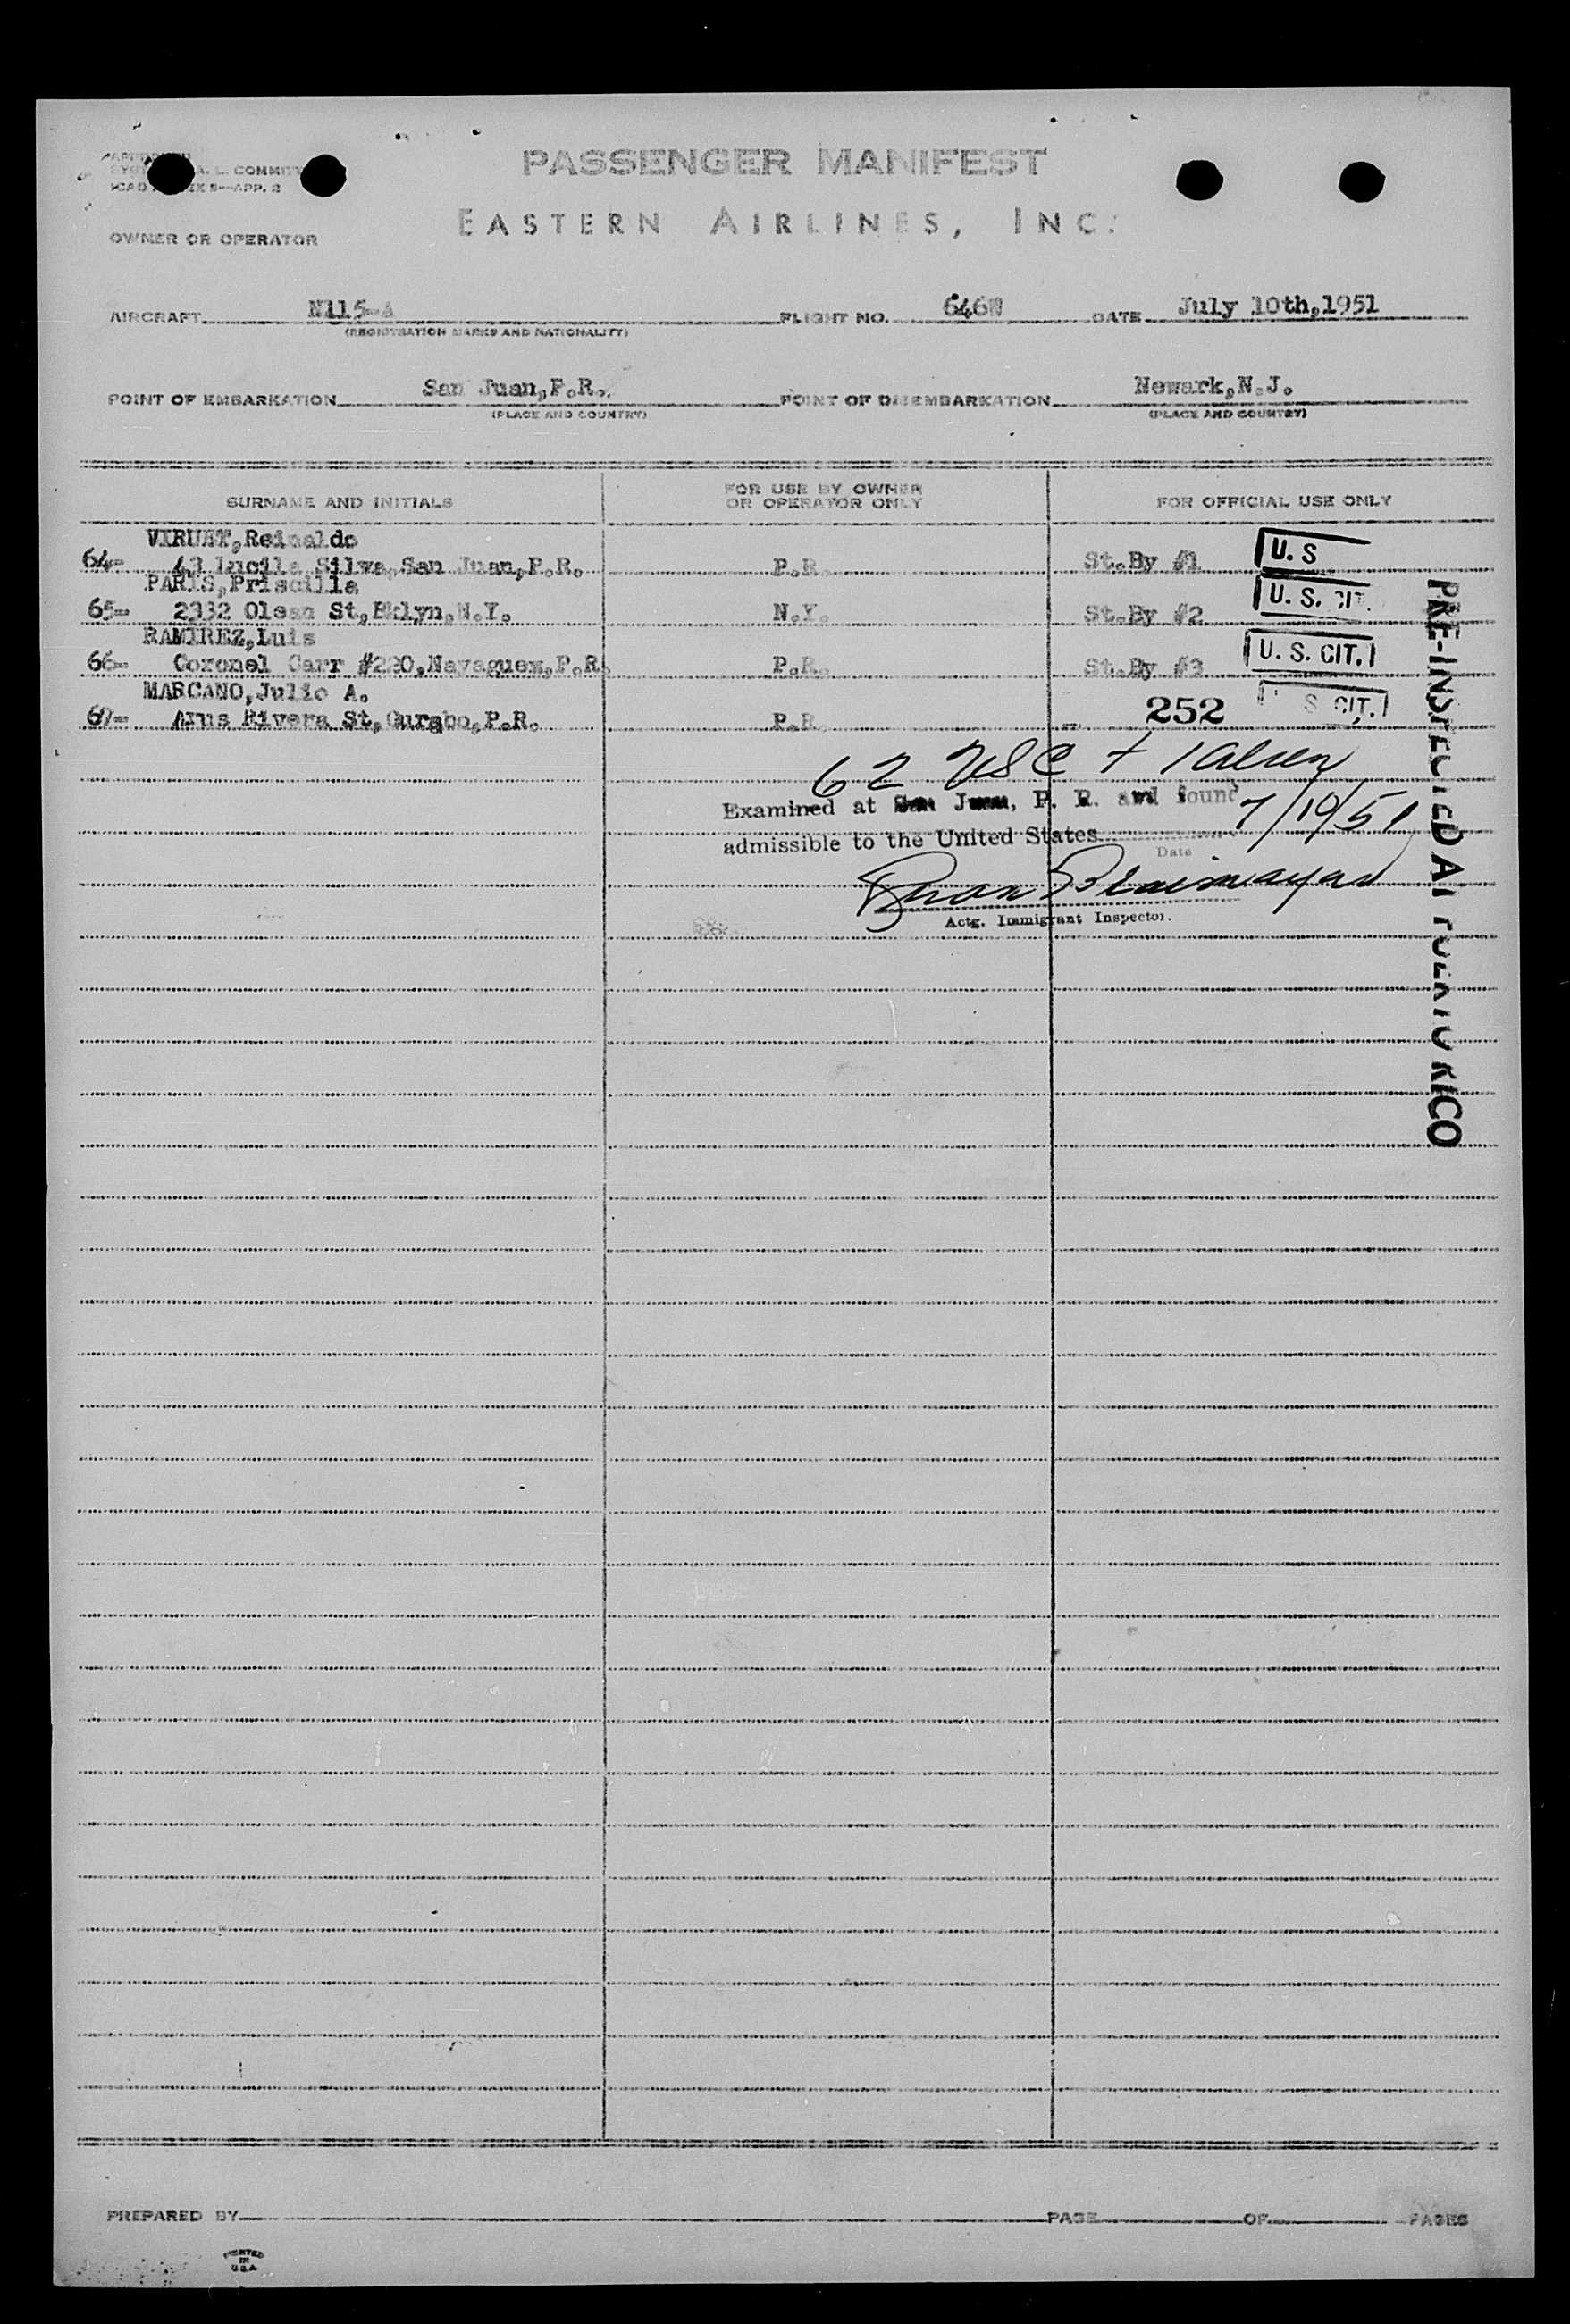 PASSENGER MANIFEST
A. L. COMMITTEE
ICAO ANNEX 9—APP. 2
EASTERN AIRLINES, INC.
OWNER OR OPERATOR
AIRCRAFT N115-A FLIGHT NO. 646N DATE July 10th,1951
(REGISTRATION MARKS AND NATIONALITY)
POINT OF EMBARKATION San Juan,P.R. POINT OF DISEMBARKATION Newark,N.J.
(PLACE AND COUNTRY) (PLACE AND COUNTRY)
SURNAME AND INITIALS FOR USE BY OWNER OR OPERATOR ONLY FOR OFFICIAL USE ONLY
VIRUET,Reinaldo
64- 43 Lucila Silva,San Juan,P.R. P.R. St.By #1 U. S
PARIS,Priscilla
65- 2332 Olean St,Bklyn,N.Y. N.Y. St.By #2 U. S. CIT.
RAMIREZ,Luis
66- Coronel Carr #220,Mayaguez,P.R. P.R. St.By #3 U. S. CIT.
MARCANO,Julio A.
67- Rivera St, P.R. P.R. 252 S CIT.
62 USC + 1 Alien
Examined at San Juan, P. R. and found
admissible to the United States 7/10/51
Date
Actg. Immigrant Inspector.
PRE-INSPECTED AT PUERTO RICO
PREPARED BY PAGE OF PAGES
PRINTED
IN
U.S.A.